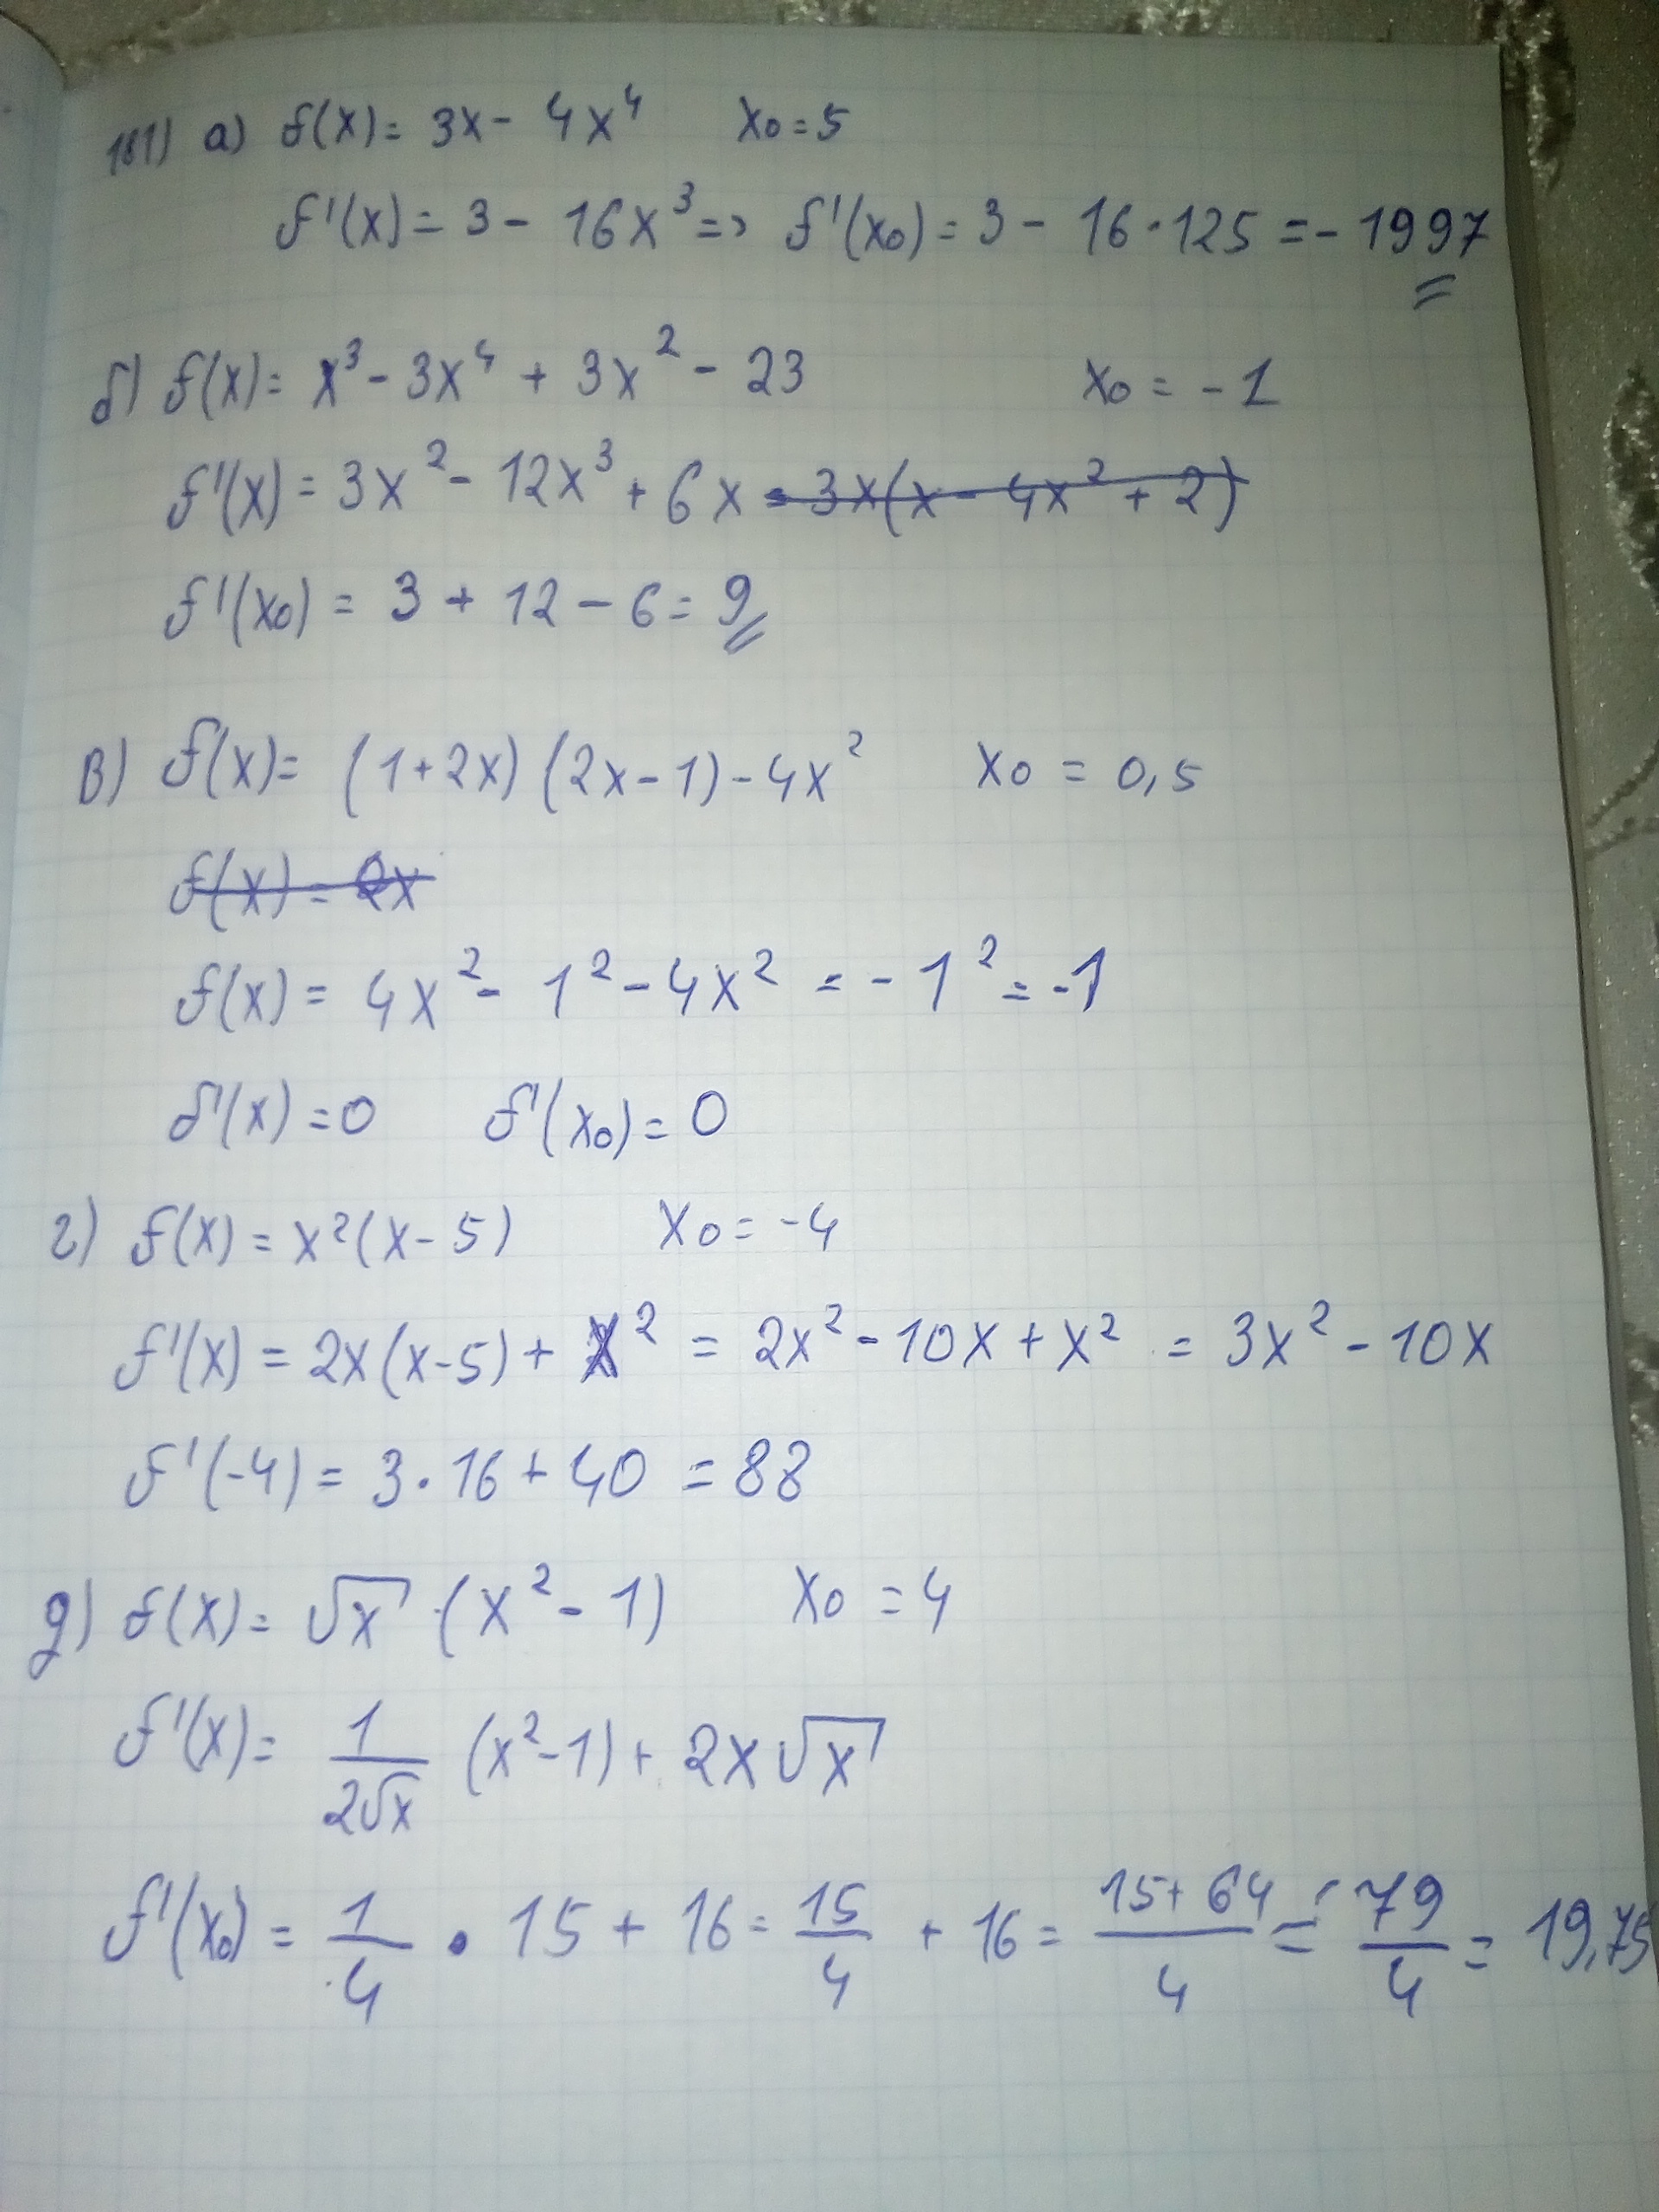 181) а) f(x) = 3x - 4x⁴ x₀ = 5
f'(x) = 3 - 16x³ => f'(x₀) = 3 - 16 · 125 = - 1997
б) f(x) = x³ - 3x⁴ + 3x² - 23 x₀ = - 1
f'(x) = 3x² - 12x³ + 6x = 3x(x - 4x² + 2)
f'(x₀) = 3 + 12 - 6 = 9
в) f(x) = (1 + 2x) (2x - 1) - 4x² x₀ = 0,5
f(x) = 2x
f(x) = 4x² - 1² - 4x² = - 1² = -1
f'(x) = 0 f'(x₀) = 0
г) f(x) = x²(x - 5) x₀ = -4
f'(x) = 2x(x - 5) + x² = 2x² - 10x + x² = 3x² - 10x
f'(-4) = 3 · 16 + 40 = 88
д) f(x) = √x · (x² - 1) x₀ = 4
f'(x) = 1/(2√x) (x² - 1) + 2x√x
f'(x₀) = 1/4 · 15 + 16 = 15/4 + 16 = (15 + 64)/4 = 79/4 = 19,75